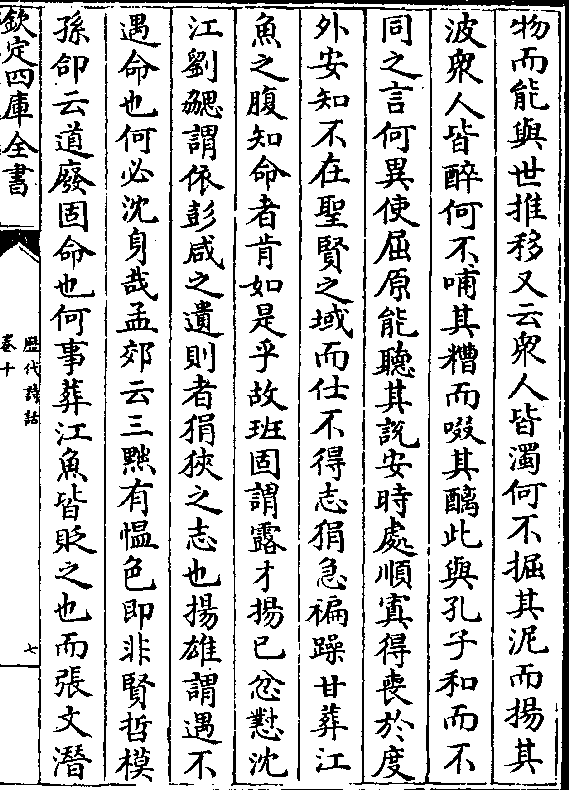 物而能與世推移又云衆人皆濁何不掘其泥而揚其
波衆人皆醉何不哺其糟而啜其醨此與孔子和而不
同之言何異使屈原能聽其說安時處順寘得喪於度
外安知不在聖賢之域而仕不得志狷急褊躁甘葬江
魚之腹知命者肯如是乎故班固謂露才揚已忿懟沈
江劉勰謂依彭咸之遺則者狷狹之志也揚雄謂遇不
遇命也何必沈身哉孟郊云三黜有愠色即非賢哲模
孫郃云道廢固命也何事葬江魚皆貶之也而張文潛
欽定四庫全書
歷代詩話
卷十
七